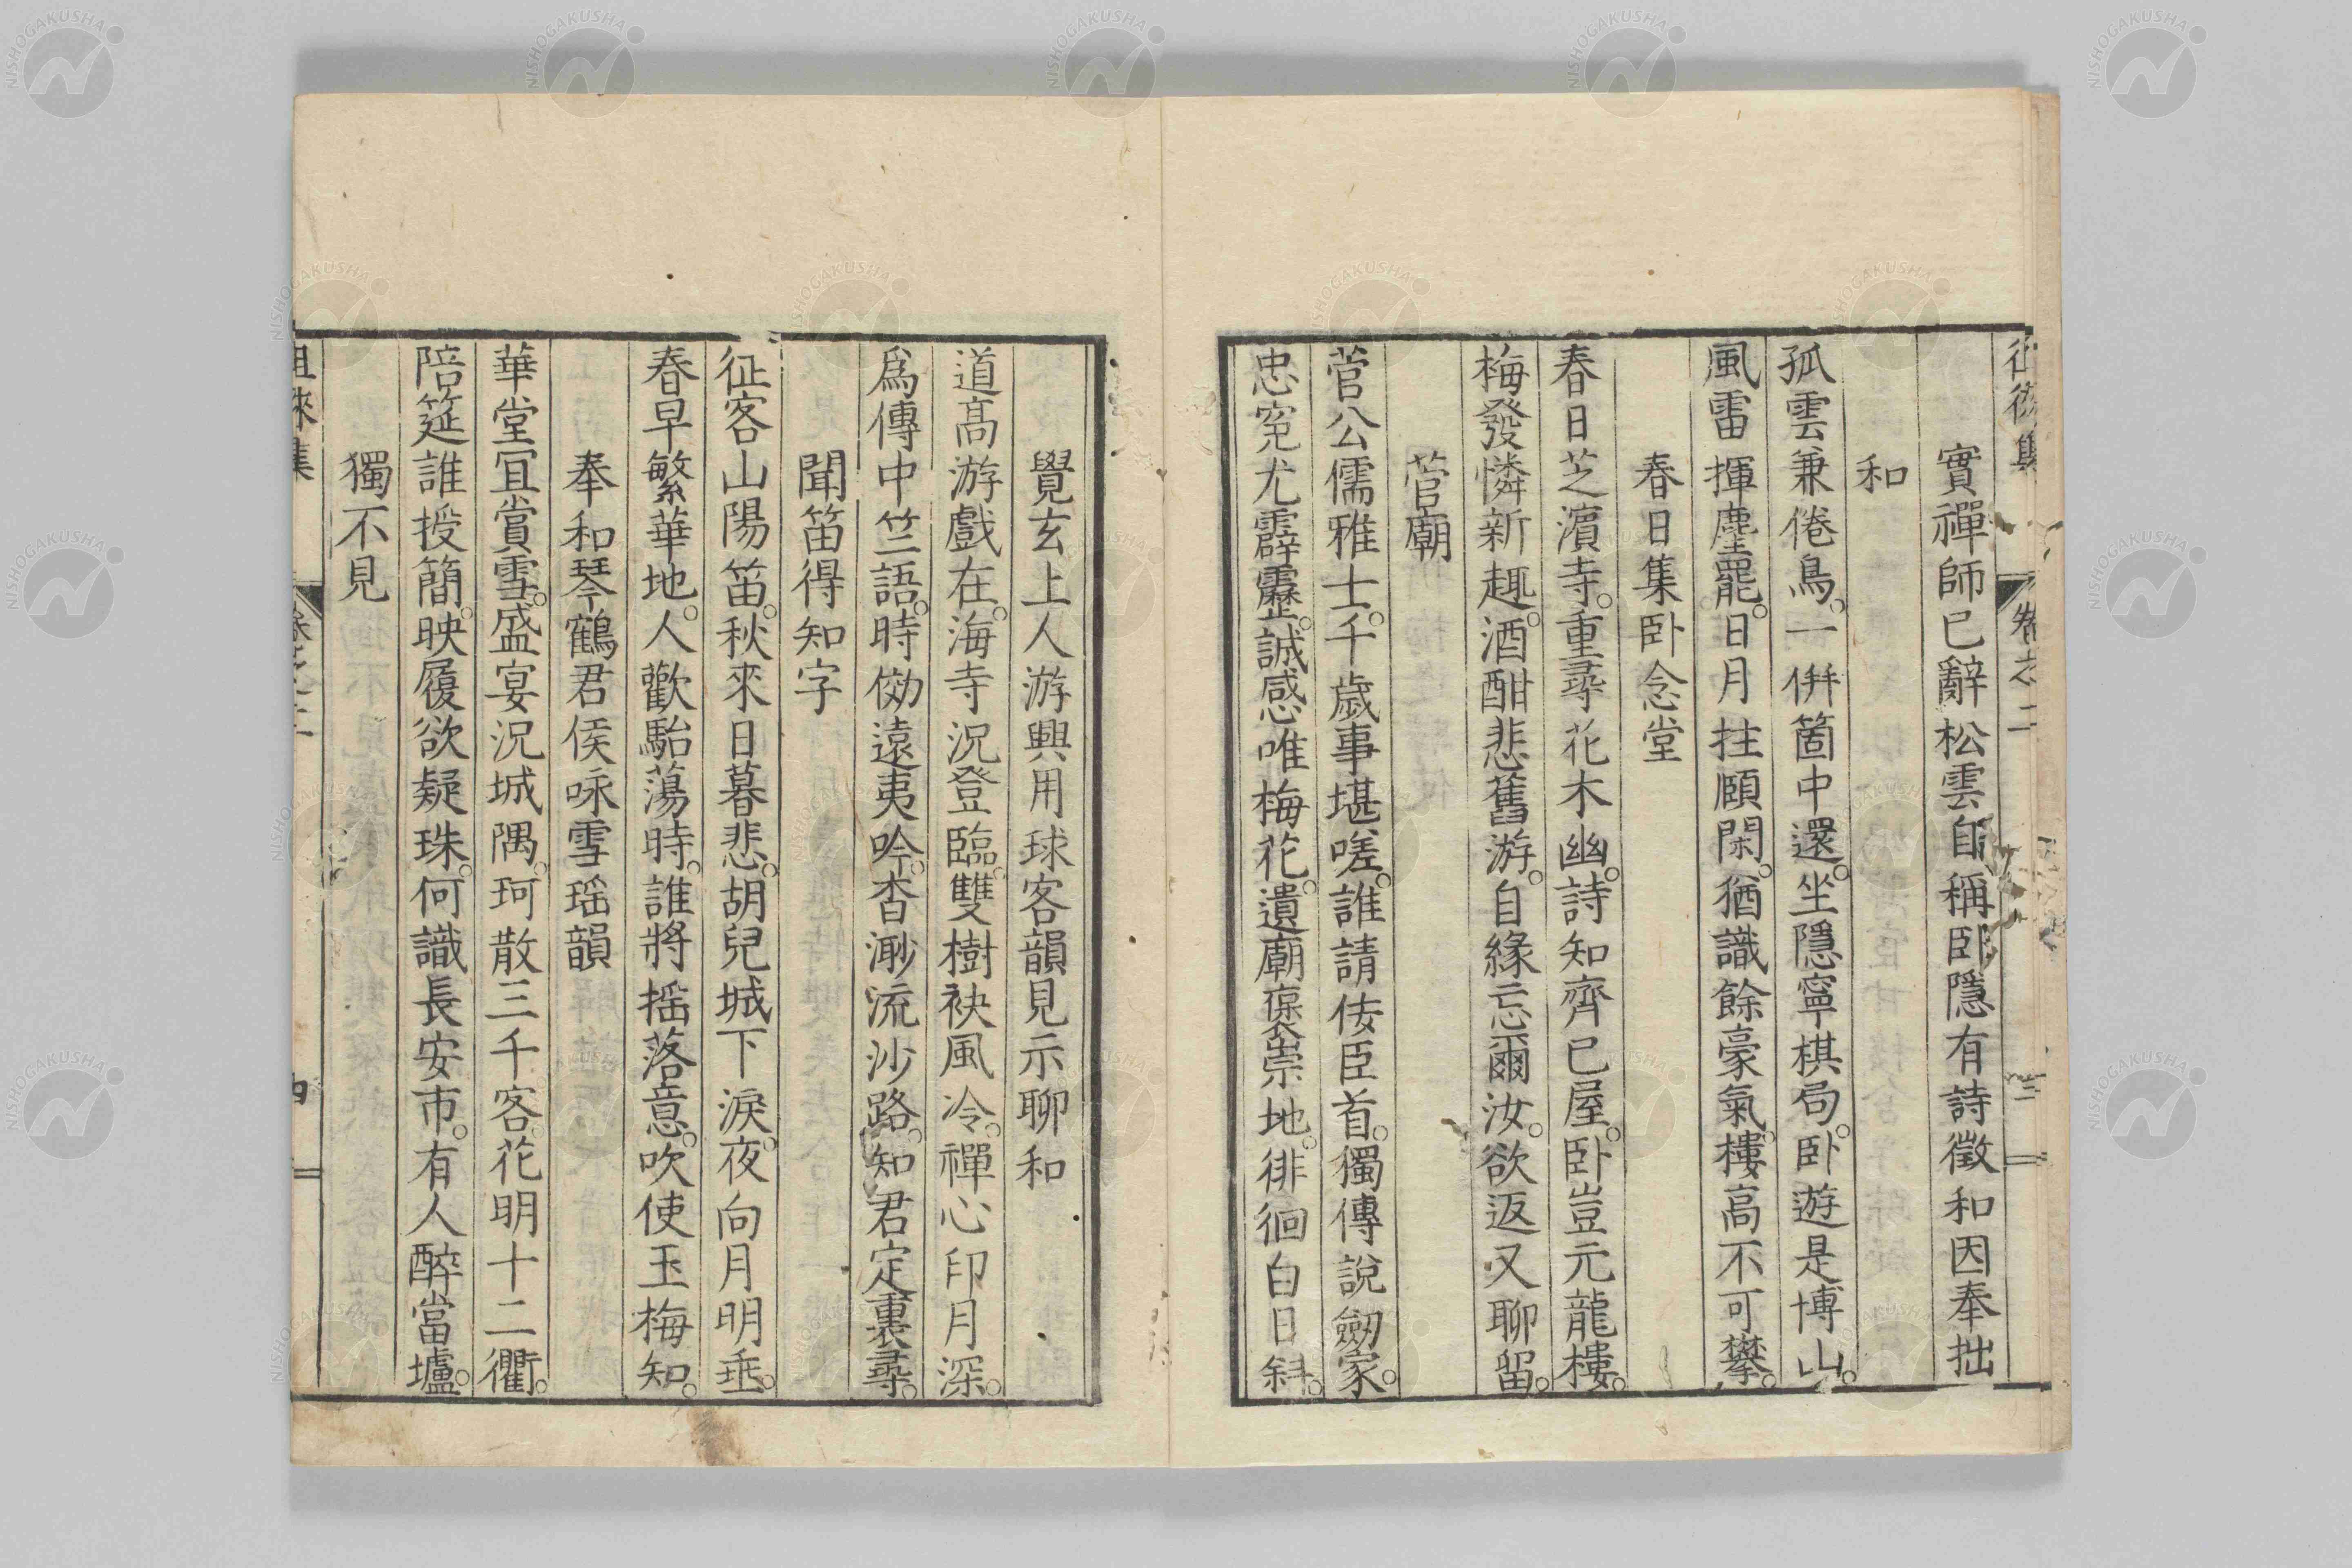 徂徠集 卷之二 三
實禪師已辭松雲自稱臥隱有詩徵和因奉拙
和
孤雲兼倦鳥。一併箇中還。坐隱寧棋局。臥遊是博山。
風雷揮麈罷。日月拄頤閑。猶識餘豪氣。樓高不可攀。
春日集臥念堂
春日芝濵寺。重尋花木幽。詩知齊已屋。臥豈元龍樓。
梅發憐新趣。酒酣悲舊游。自緣忘爾汝。欲返又聊留。
菅廟
菅公儒雅士。千歲事堪嗟。誰請侫臣首。獨傳說劒家。
忠寃尤霹靂。誠感唯梅花。遺廟褒崇地。徘徊白日斜。
覺玄上人游興用球客韻見示聊和
道高游戲在。海寺況登臨。雙樹袂風冷。禪心印月深。
爲傳中竺語。時倣遠夷吟。杳渺流沙路。知君定裏尋。
聞笛得知字
征客山陽笛。秋來日暮悲。胡兒城下淚。夜向月明垂。
春早繁華地。人歡駘蕩時。誰將搖落意。吹使玉梅知。
奉和琴鶴君侯咏雪瑶韻
華堂冝賞雪。盛宴況城隅。珂散三千客。花明十二衢。
陪筵誰授簡。映履欲疑珠。何識長安市。有人醉當壚。
獨不見
徂徠集 卷之二 四
NISHOGAKUSHA